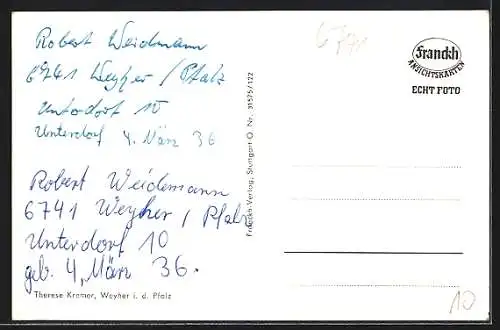 Robert Weidmann
6741 Weyher / Pfalz
Untodorf 10
Unterdorf 4. März 36
Robert Weidemann
6741 Weyher / Pfalz
Unterdorf 10
geb. 4, März 36.
Therese Kramer, Weyher i. d. Pfalz
Franckh-Verlag, Stuttgart O. Nr. 31525/122
6741
Franckh
ANSICHTSKARTEN
ECHT FOTO
10